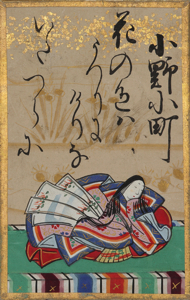 小野小町
花の色は
うつりに
けりな
いたつらに